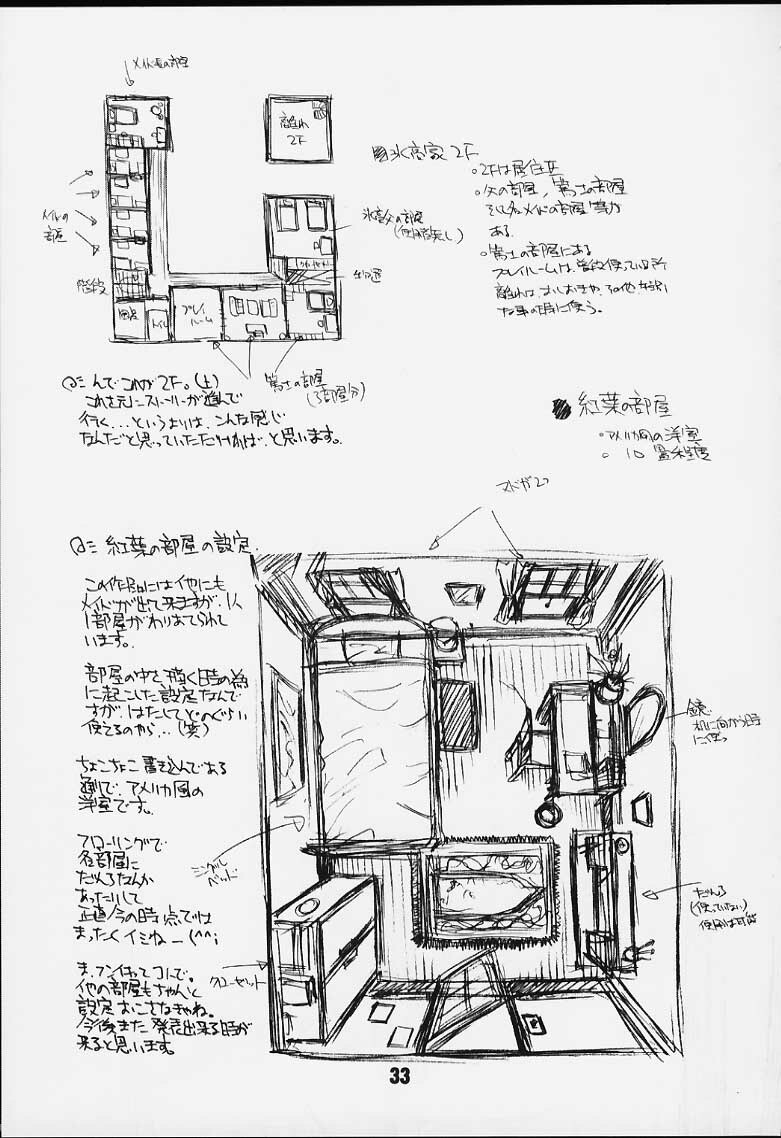 メイド長の部屋
離れ
2F
■氷高家2F
○2Fは居住区
○矢の部屋、篤士の部屋
そしてメイドの部屋等が
ある。
○篤士の部屋にある
プレイルームは普段使っている所
離れは、おしおきや、その他特別
な事の時に使う。
氷高父の部屋
(使用者無し)
メイドの
部屋
階段
トイレ
プレイ
ルーム
篤士の部屋
(3部屋分)
んでこれが2F。(上)
これを元にストーリーが進んで
行く...というよりは、こんな感じ
なんだと思っていただければ、と思います。
紅葉の部屋
○アメリカ風の洋室
○10畳程度
マドが2つ
紅葉の部屋の設定
この作品には他にも
メイドが出て来ますが、1人
1部屋がわりあてられて
います。
部屋の中を描く時の為
に起こした設定なんで
すが、はたしてどのぐらい
使えるのやら...(笑)
ちょこちょこ書き込んである
通りで、アメリカ風の
洋室です。
フローリングで
各部屋に
だんろなんか
あったりして
正直今の時点では
まったくイミねー(^^;
ま、フンイキってコトで。
他の部屋もちゃんと
設定おこさなきゃね。
今後また発表出来る時が
来ると思います。
鏡。
机に向かう時
に使う
シングル
ベッド
だんろ
(使っていない)
使用は可能
クローゼット
33